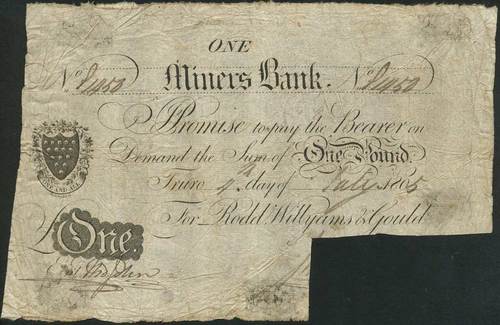 ONE
No Miners Bank. No
I Promise to pay the Bearer on
Demand the Sum of One Pound.
Truro 4th day of July 1805
For Rodd Willyams & Gould
£ One.
ONE AND ALL